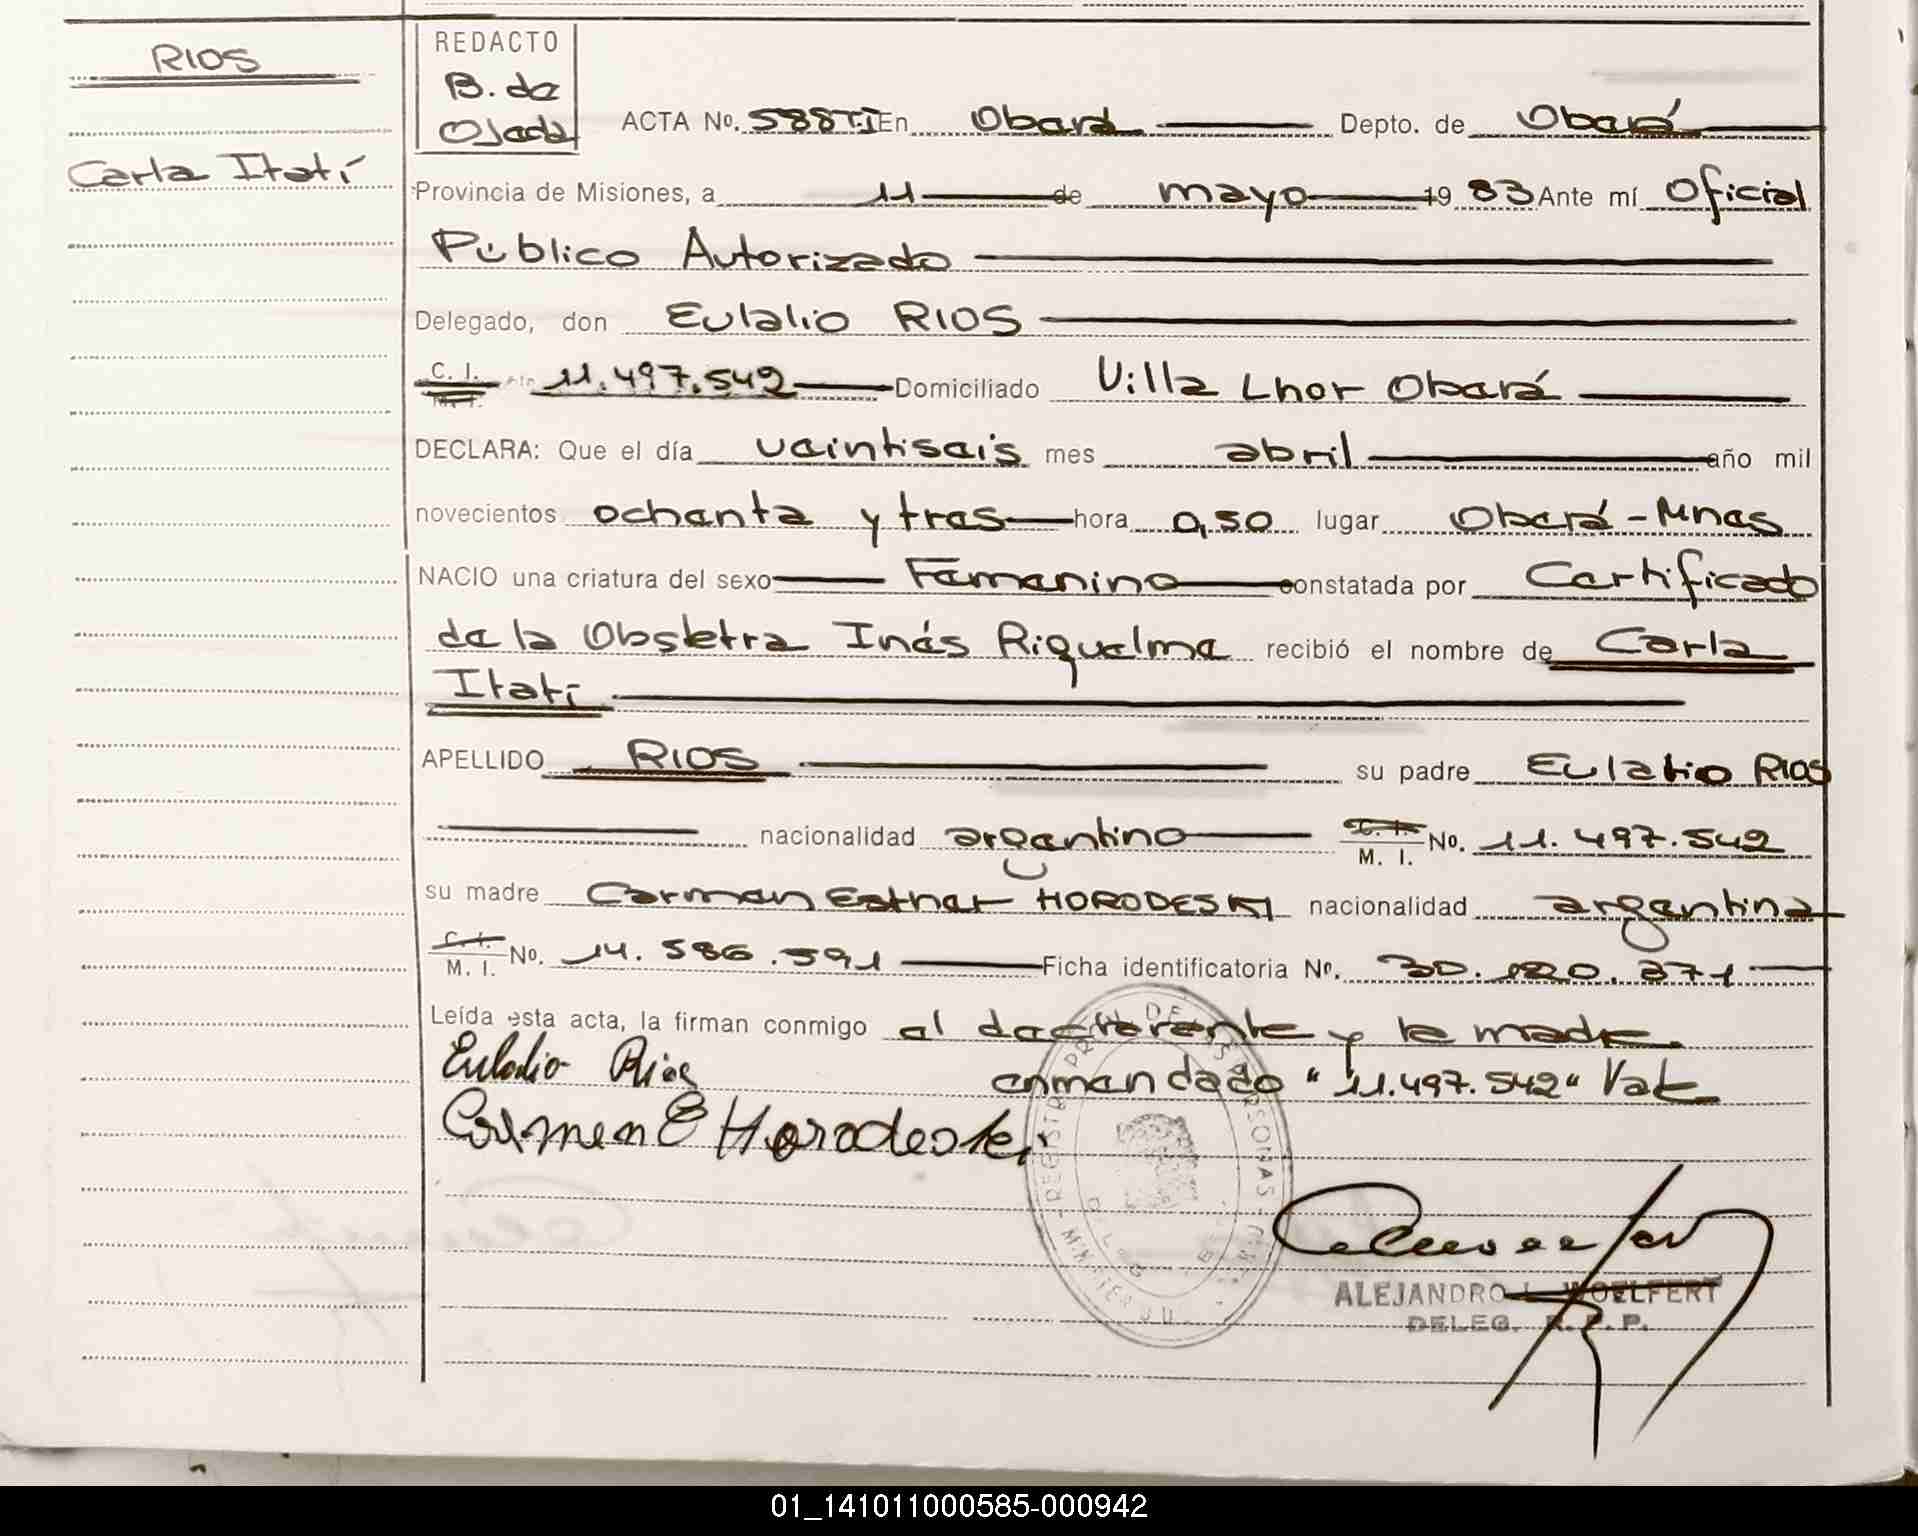 RIOS
Carla Itatí
REDACTO
B. de
Ojeda
ACTA No. 588TI En Oberá Depto. de Oberá
Provincia de Misiones, a 11 de mayo 1983 Ante mí Oficial
Público Autorizado
Delegado, don Eulalio RIOS
C. I. 11.497.542 Domiciliado Villa Lhor Oberá
DECLARA: Que el día veintiseis mes abril año mil
novecientos ochenta y tres hora 0,50 lugar Oberá - Mnes
NACIO una criatura del sexo Femenino constatada por Certificado
de la Obstetra Inés Riquelme recibió el nombre de Carla
Itatí
APELLIDO RIOS su padre Eulalio Rios
nacionalidad argentino C. I. M. I. No. 11.497.542
su madre Carmen Esther HORODESKI nacionalidad argentina
C. I. M. I. No. 14.586.591 Ficha identificatoria No. 30.120.371
Leída esta acta, la firman conmigo el declarante y la madre.
Eulalio Rios enmendado "11.497.542" Vale
Carmen E Horodeski
ALEJANDRO L. WOELFERT
DELEG. R. P. P.
01_141011000585-000942